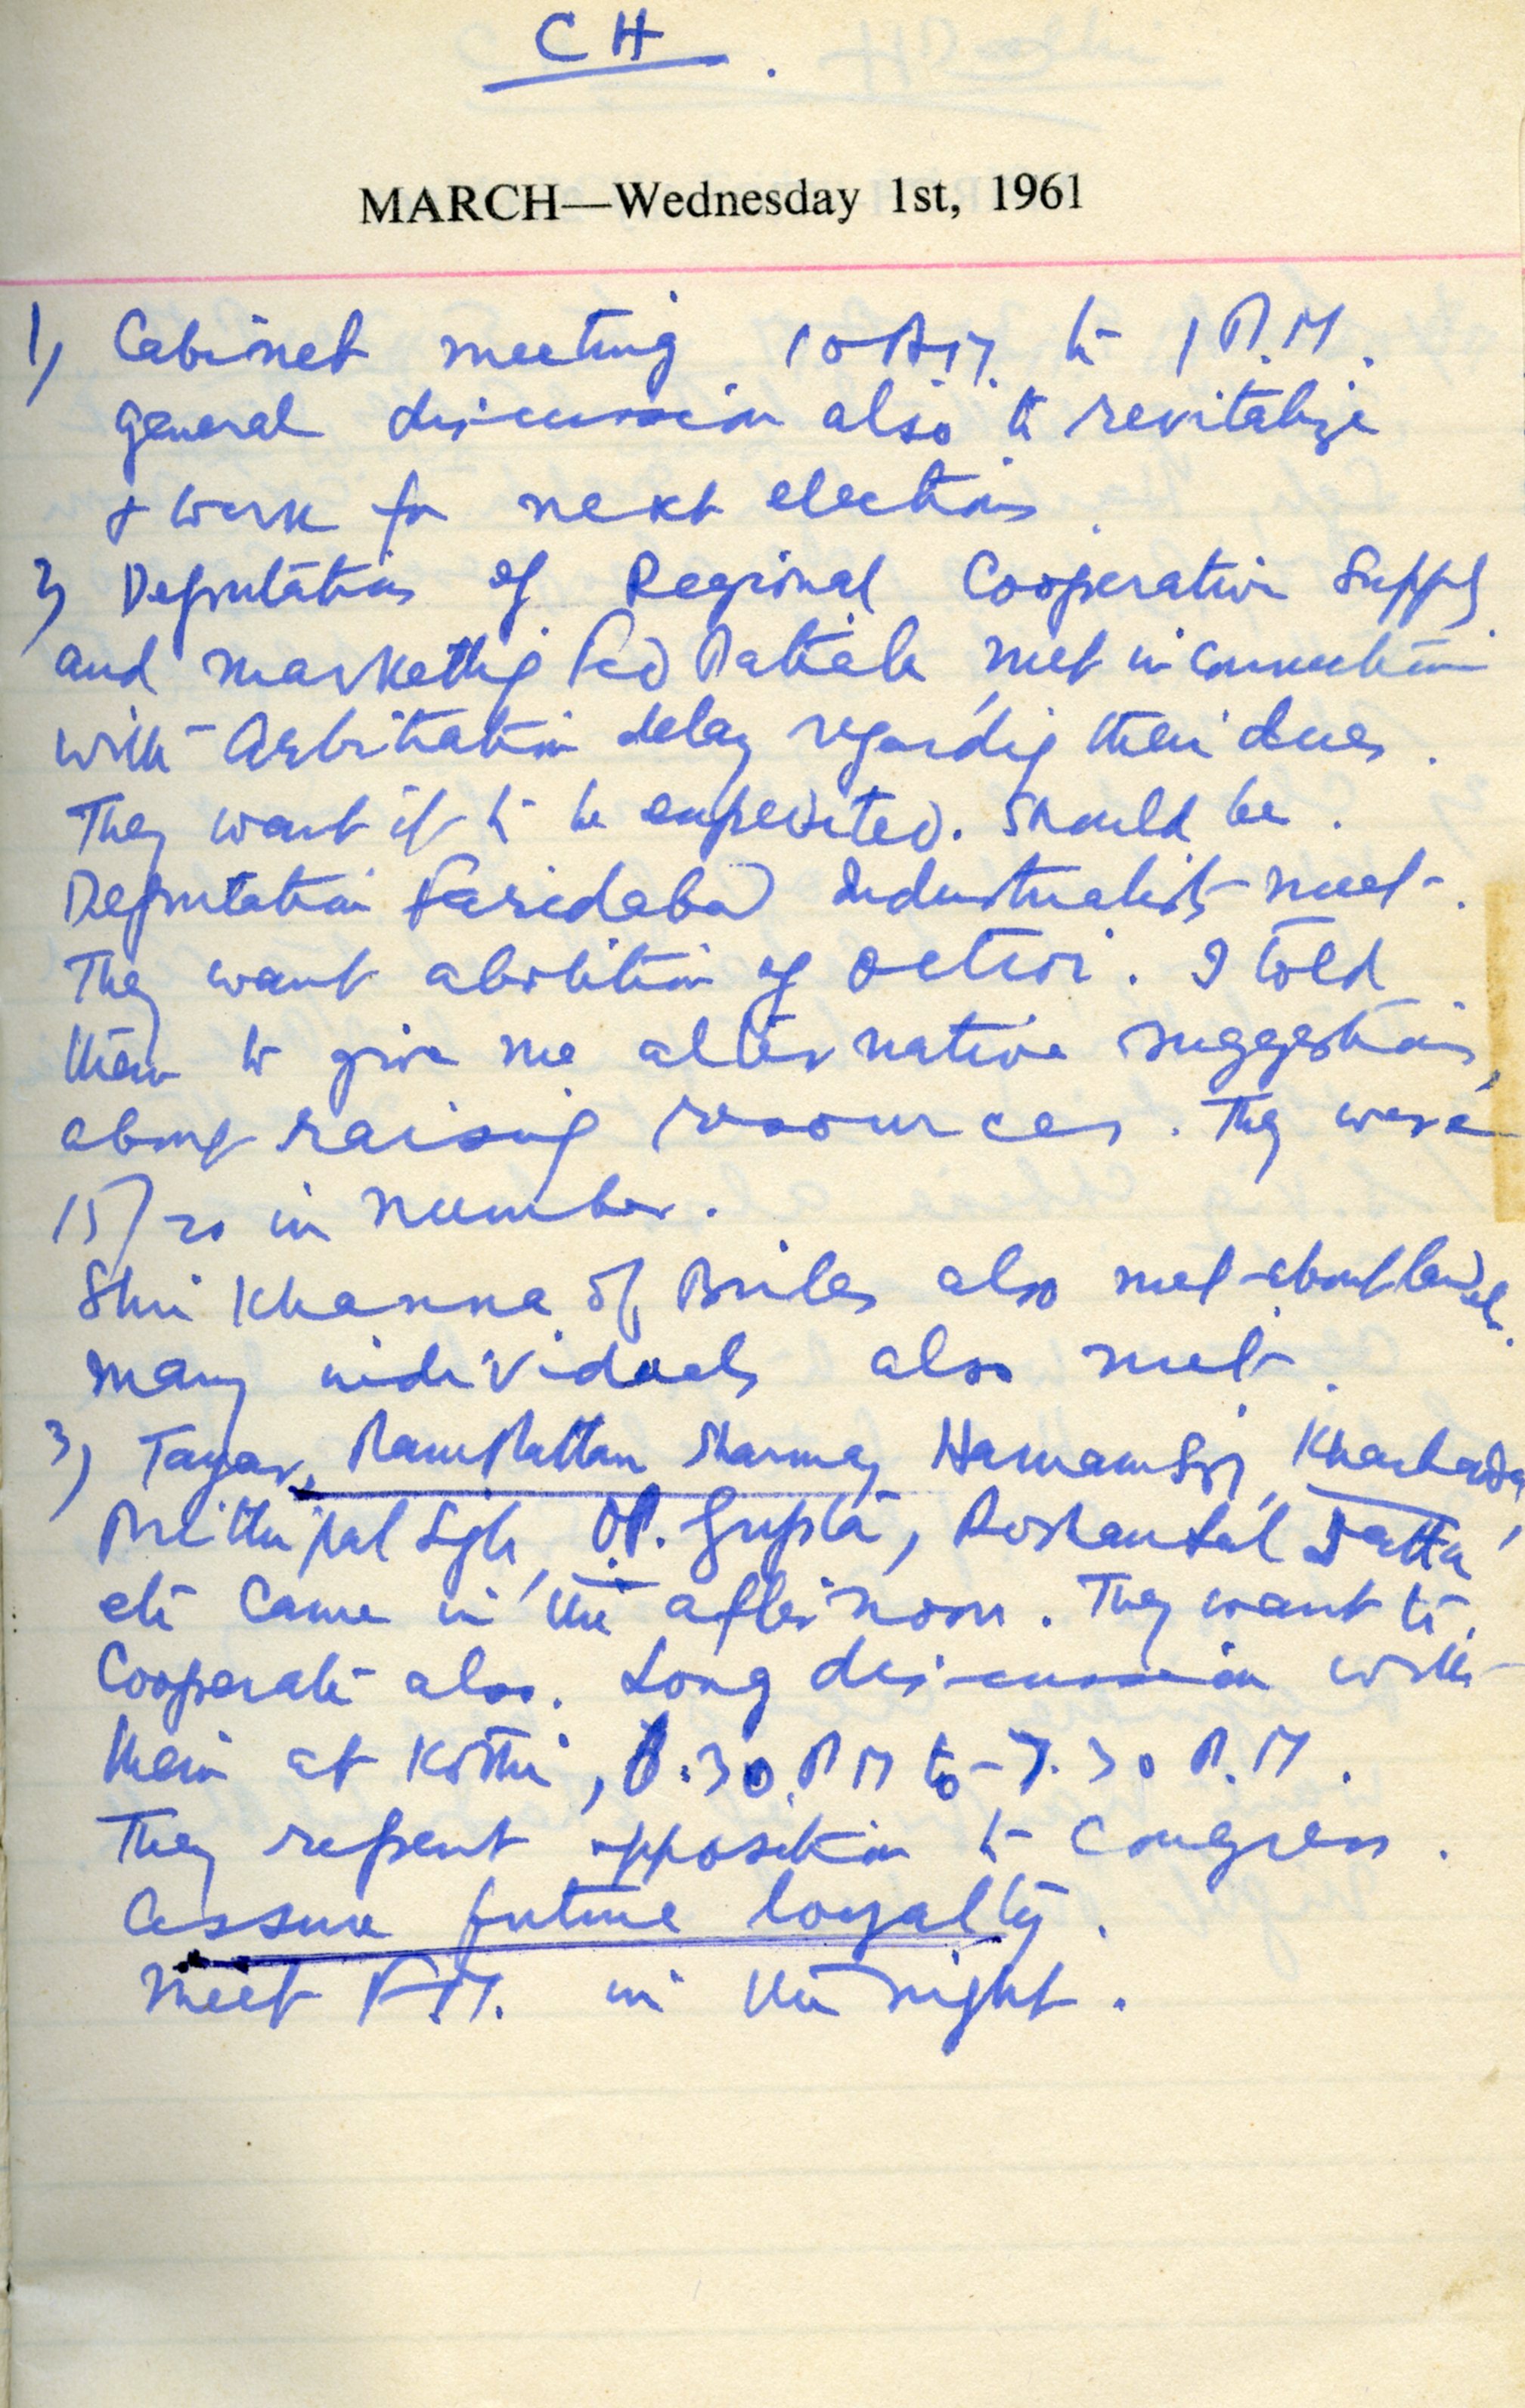 CH.
MARCH—Wednesday 1st, 1961
1) Cabinet meeting 10 A.M. to 1 P.M.
general discussion also to revitalize
& work for next elections.
2) Deputation of Regional Cooperative Supply
and marketting Fed Patiala, met in connection
with Arbitration delay regarding their dues.
They want it to be expedited. Should be.
Deputation Faridabad Industrialists met.
They want abolition of octroi. I told
them to give me alternative suggestions,
about raising resources. They were
15/20 in number.
Shri Khanna of also met about
many individuals also met.
3) Tayar, Ram Rattan Sharma, Harnam Singh,
Prithipal Sgh, O.P. Gupta, Roshan Lal Datta,
etc came in the afternoon. They want to
Cooperate also. Long discussion with
them at Kothi, .30 P.M to 7.30 P.M.
They repsent opposition to Congress.
Assure future loyalty.
Meet F.M. in the night.